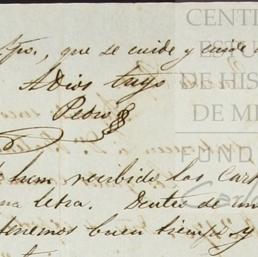 que se cuide y cuide
Adios tuyo
Pedro
han recibido las cart
na letra. Dentro de un
tenemos buen tiempo y
CENT
EST
DE HIS
DE M
FUND